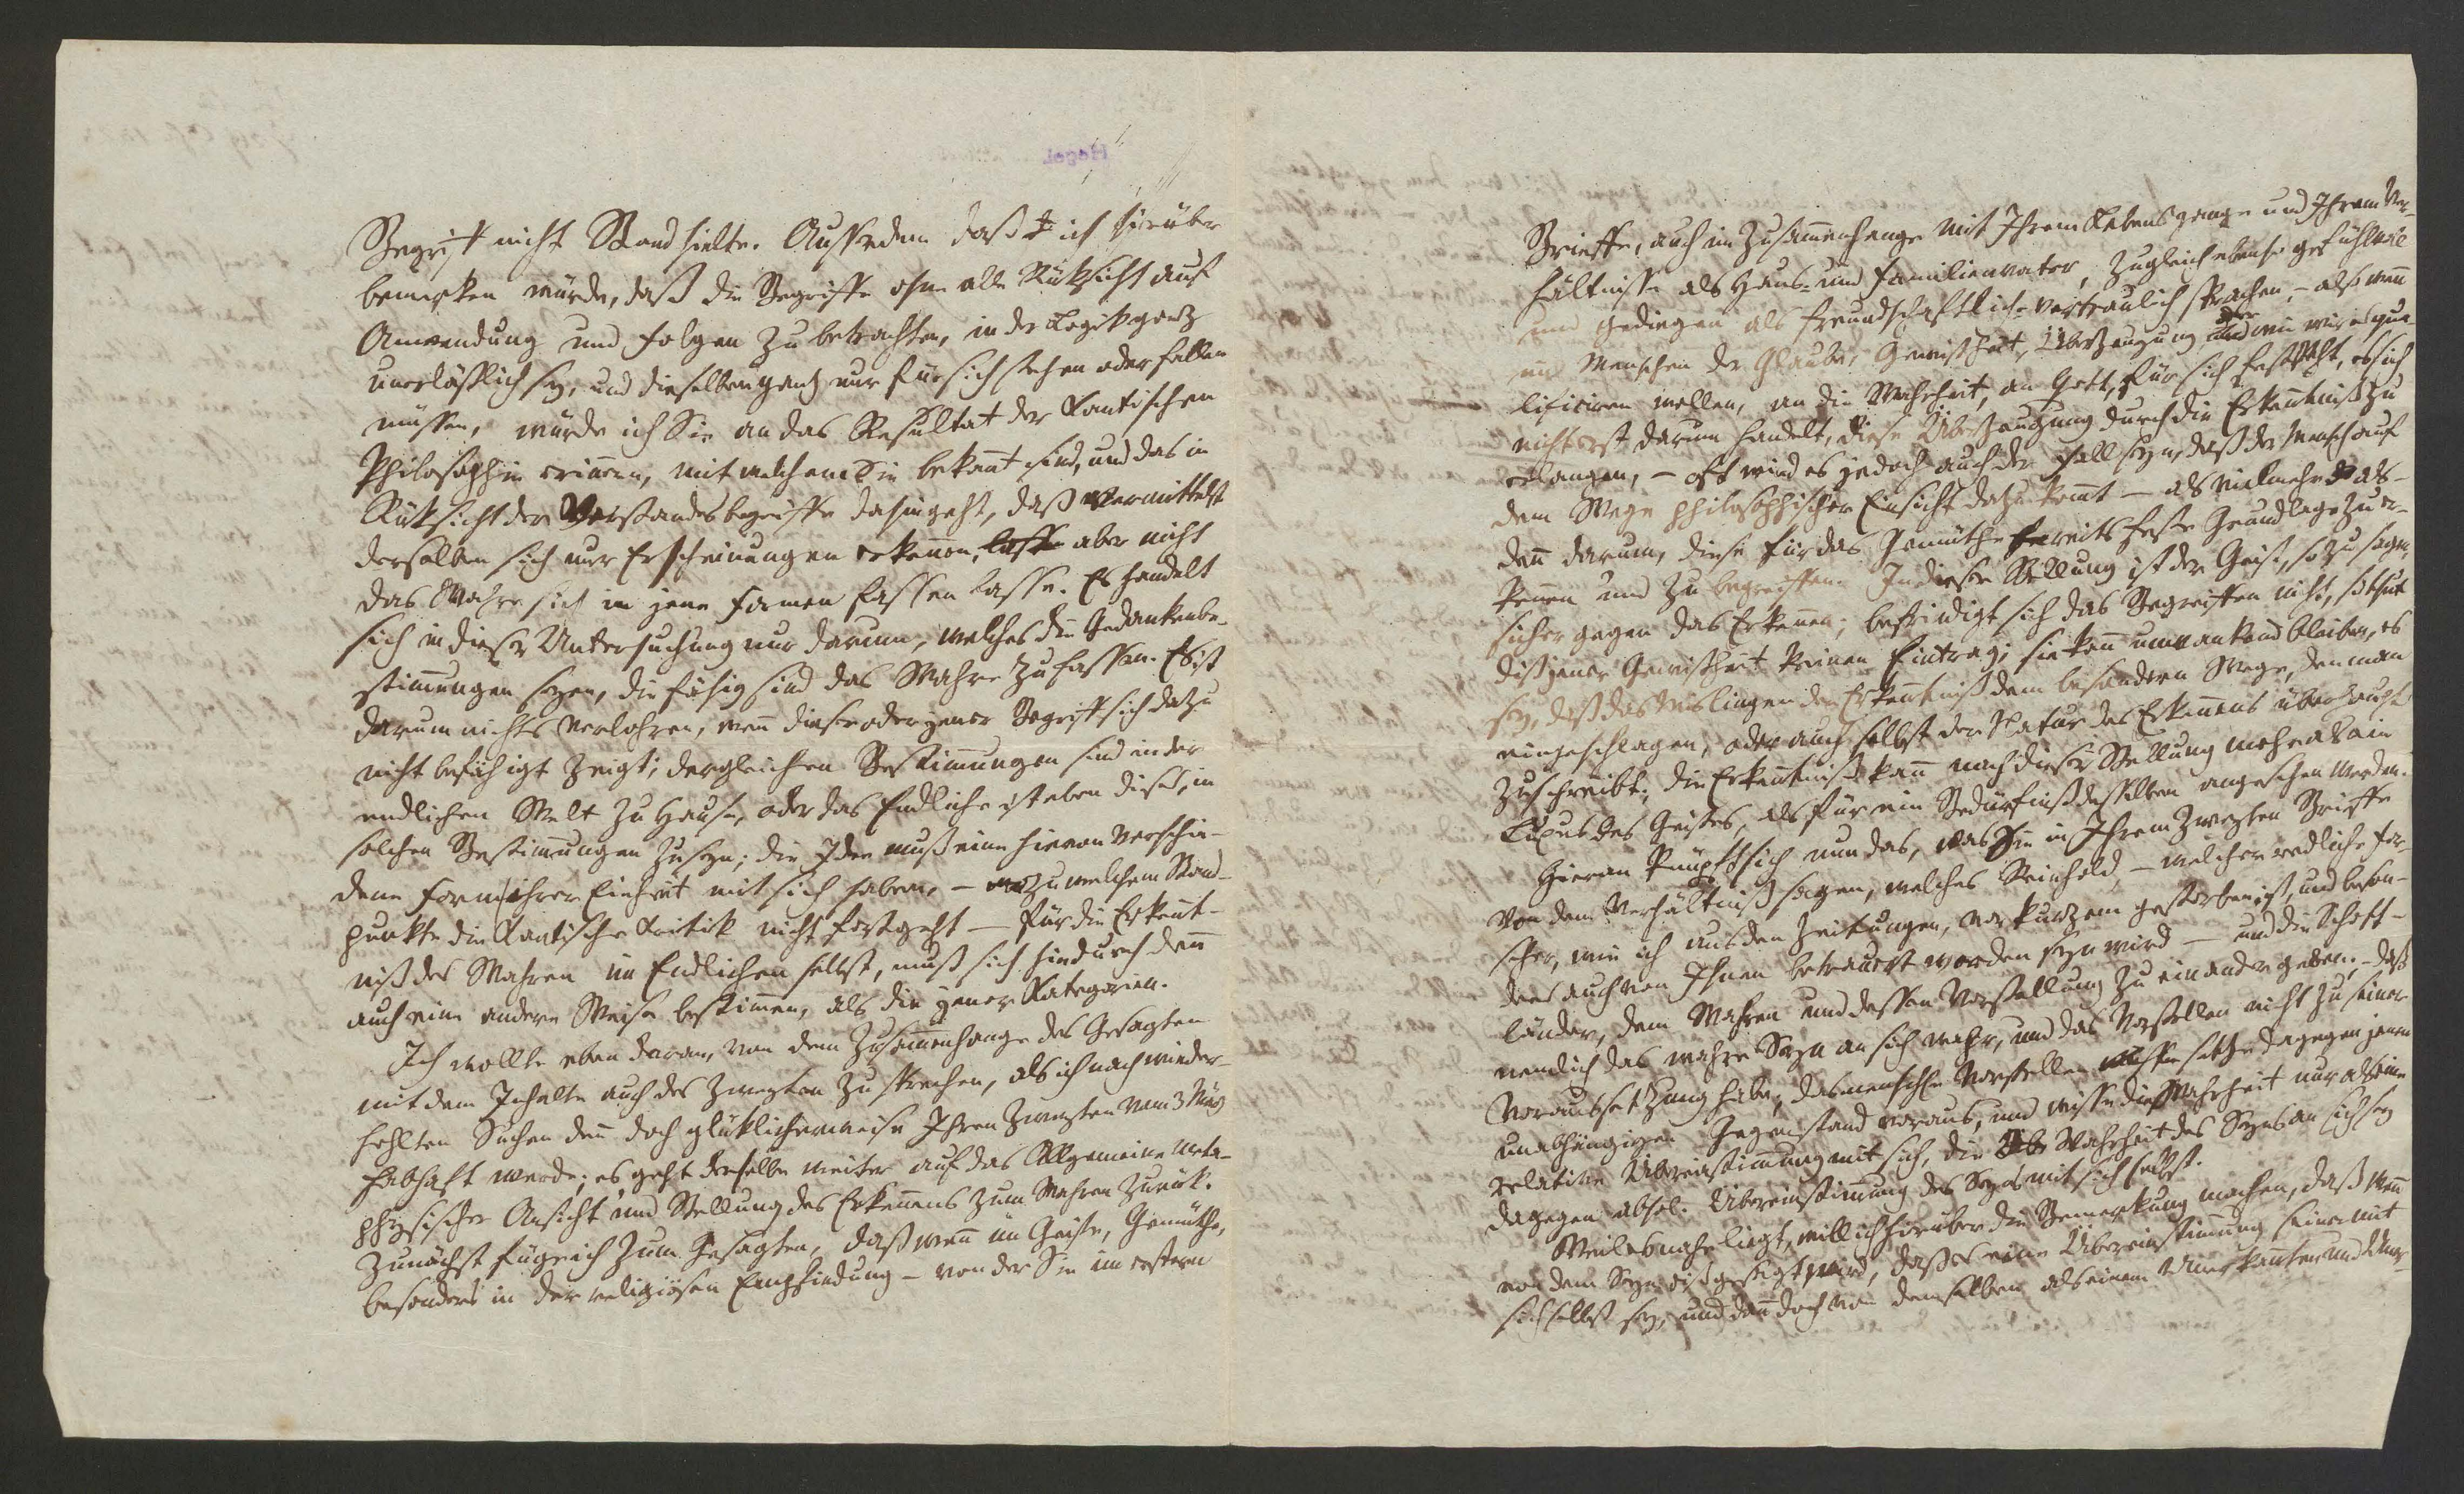 Hegel
Begriff nicht Stand hielte. Ausserdem daß ich hierüber
bemerken würde, daß die Begriffe ohne alle Rüksicht auf
Anwendung und Folgen zu betrachten, in der Logik ganz
unerläßlich sey, und dieselben ganz nur für sich stehen oder fallen
müssen, würde ich Sie an das Resultat der Kantischen
Philosophie erinnern, mit welchem Sie bekannt sind, und das in
Rüksicht der Verstandesbegriffe dahin geht, daß vermittelst
derselben sich nur Erscheinungen erkennen, lasse aber nicht
das Wahre sich in jene Formen fassen lasse. Es handelt
sich in dieser Untersuchung nur darum, welches die Gedankenbe-
stimmungen seyen, die fähig sind das Wahre zu fassen. Es ist
darum nichts verlohren, wenn dieser oder jener Begriff sich dazu
nicht befähigt zeigt; dergleichen Bestimmungen sind in der
endlichen Welt zu Hause, oder das Endliche ist eben diß, in
solchen Bestimmungen zu seyn; die Idee muß eine hievon verschie-
dene Form ihrer Einheit mit sich haben, – zu welchem Stand-
punkte die Kantische Kritik nicht fortgeht – für die Erkennt-
niß des Wahren im Endlichen selbst, muß sich hiedurch denn
auch eine andere Weise bestimmen, als die jener Kategorien.
Ich wollte eben daran, von dem Zusammenhange des Gesagten
mit dem Inhalte auch des Zweyten zu sprechen, als ich nach wieder-
hohlten Suchen denn doch glüklicherweise Ihren Zweyten vom 3 März
habhaft werde; es geht derselbe weiter auf das Allgemeine meta-
physischer Ansicht und Stellung des Erkennens zum Wahren zurük.
Zunächst füge ich zum Gesagten, daß wenn im Geiste, Gemüthe,
besonders in der religiösen Empfindung – von der Sie im erstern
Brieffe, auch im Zusammenhange mit Ihrem Lebensgange und Ihrem Ver-
hältnisse als Haus- und Familienvater, zugleich ebenso gefühlvoll
und gediegen als freundschaftlich-vertraulich sprachen, – also wenn
im Menschen der Glaube, Gewißheit, Überzeugung oder wie wir es qua-
lificiren wollen, an die Wahrheit, an Gott, für sich feststeht, es sich
nicht erst darum handelt, diese Überzeugung durch die Erkenntniß zu
erlangen, – oft wird es jedoch auch der Fall seyn, daß der Mensch auf
dem Wege philosophischer Einsicht dazu kommt – als vielmehr als-
denn darum, diese für das Gemüthe bereits feste Grundlage zu er-
kennen und zu begreiffen. In dieser Stellung ist der Geist, so zu sagen,
sicher gegen das Erkennen; befriedigt sich das Begreiffen nicht, so thut
diß jener Gewißheit keinen Eintrag; sie kann unwankend bleiben, es
sey, daß das Mislingen der Erkenntniß dem besondern Wege, den man
eingeschlagen, oder auch selbst der Natur des Erkennens überhaupt
zuschreibt; die Erkenntniß kann nach dieser Stellung mehr als ein
Luxus des Geistes, als für ein Bedürfniß desselben angesehen werden.
Hieran knüpft sich nun das, was Sie in Ihrem zweyten Brieffe
von dem Verhältniß sagen, welches Reinhold – welcher redliche For-
scher, wie ich aus den Zeitungen, vor kurzem gestorben ist, und beson-
ders auch von Ihnen betrauert worden seyn wird – und die Schott-
länder, dem Wahren und dessen Vorstellung zu einander geben, – daß
nemlich das wahre Seyn an sich wahr, und das Vorstellen nicht zu seiner
Voraussetzung habe; das menschl. Vorstellen setze dagegen jenen
unabhängigen Gegenstand voraus, und wisse die Wahrheit nur als eine
relative Übereinstimmung mit sich, die Wahrheit des Seyns an sich sey
dagegen absol. Übereinstimmung des Seyns mit sich selbst.
Weil es nahe liegt, will ich hierüber die Bemerkung machen, daß wenn
von dem Seyn diß gesagt wird, daß es eine Übereinstimmung seiner mit
sich selbst sey, und dann doch von demselben als einem Unerkannten und Uner-